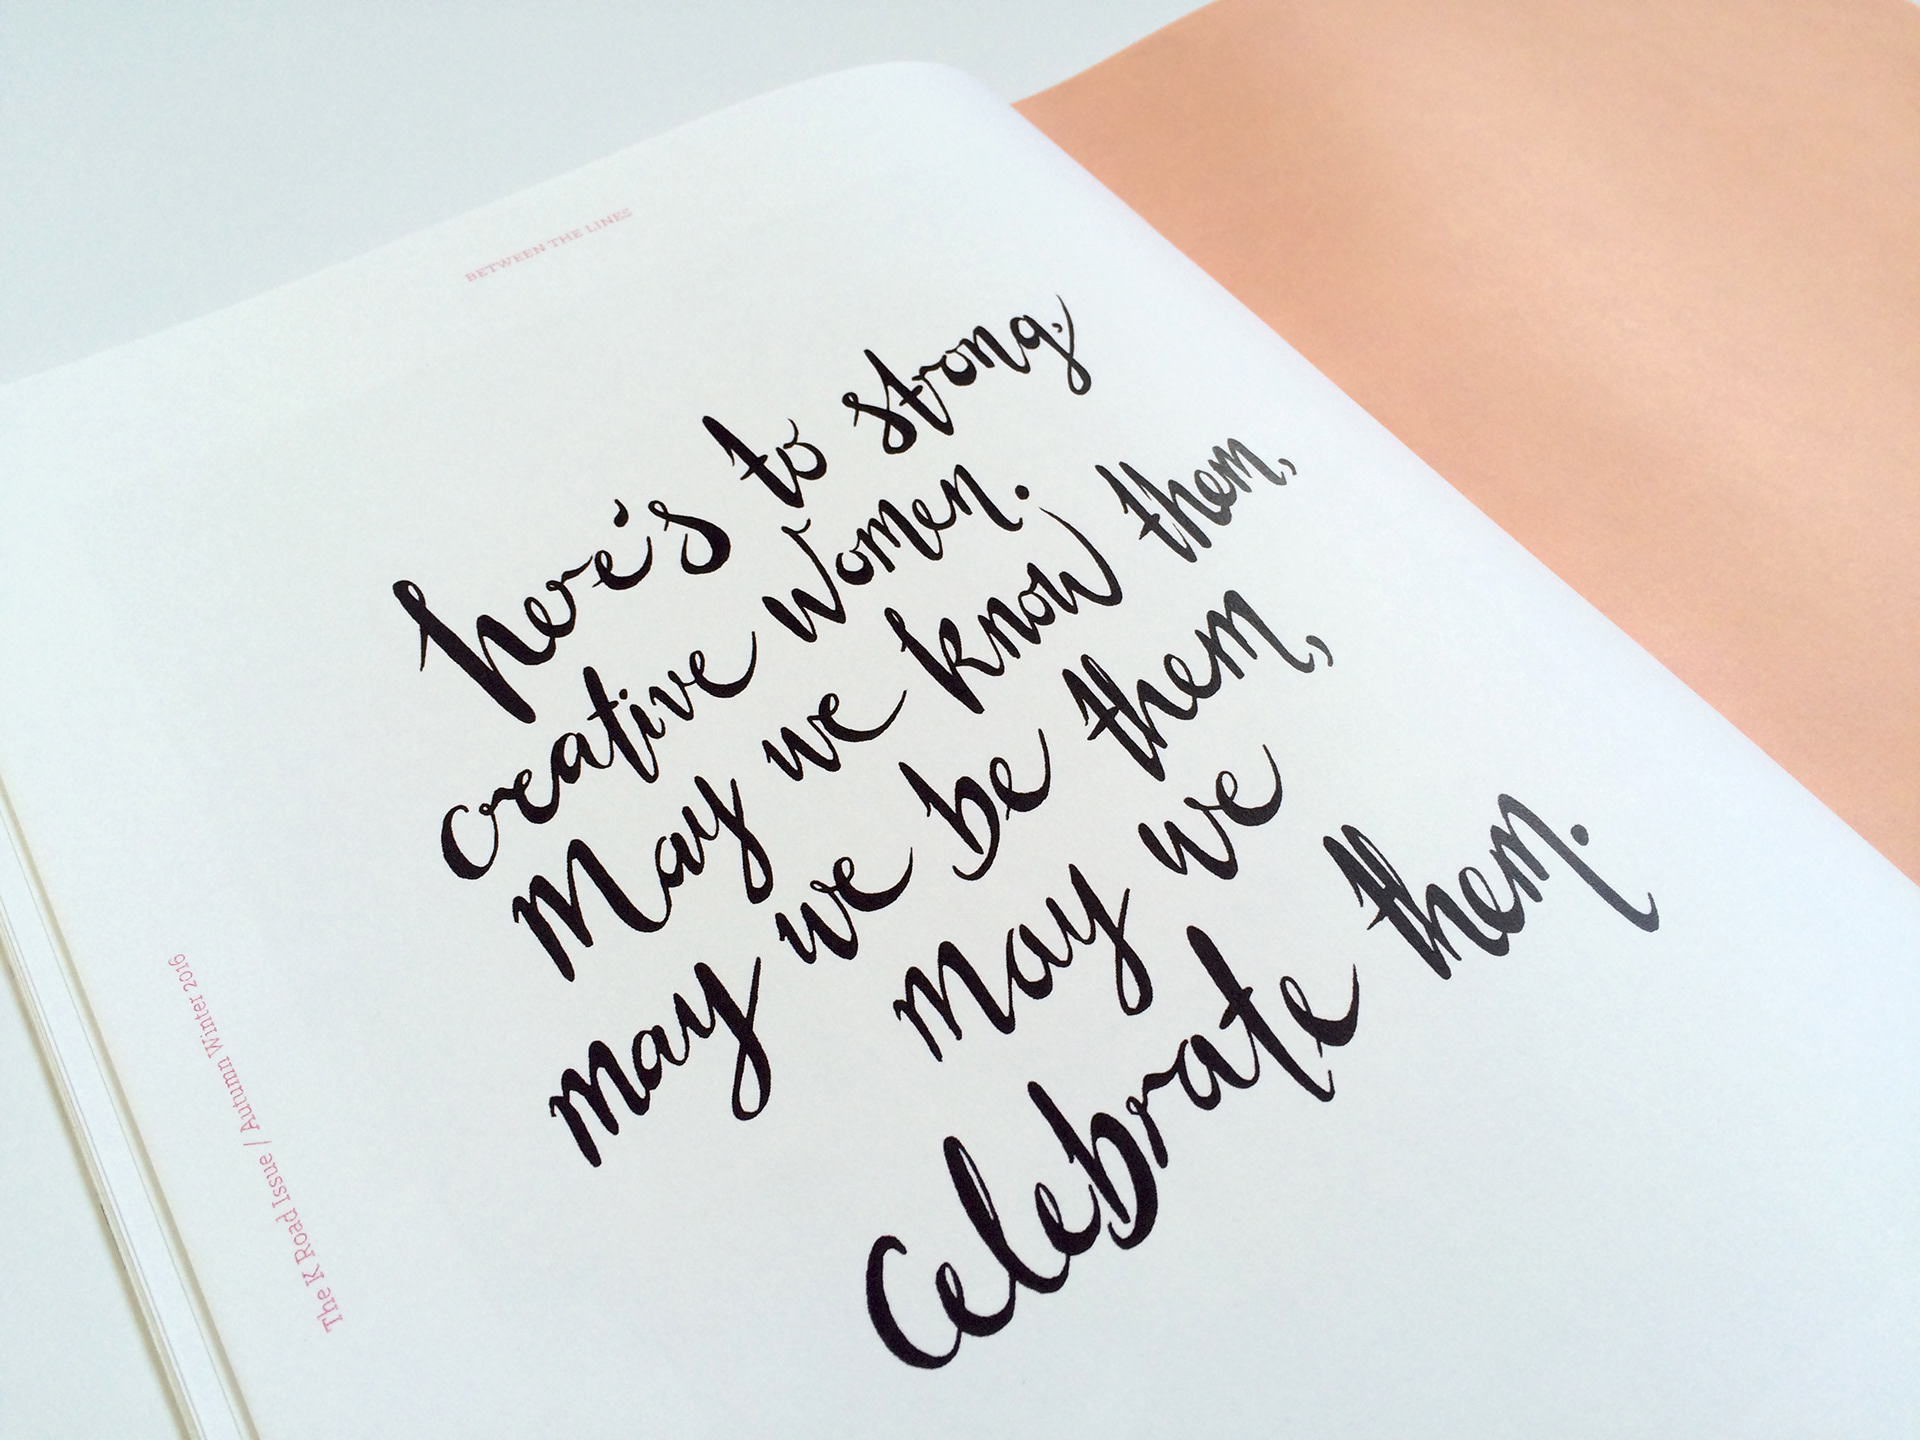 BETWEEN THE LINES
here's to strong,
creative women.
May we know them,
may we be them,
may we
celebrate them.
The K Road Issue / Autumn Winter 2016